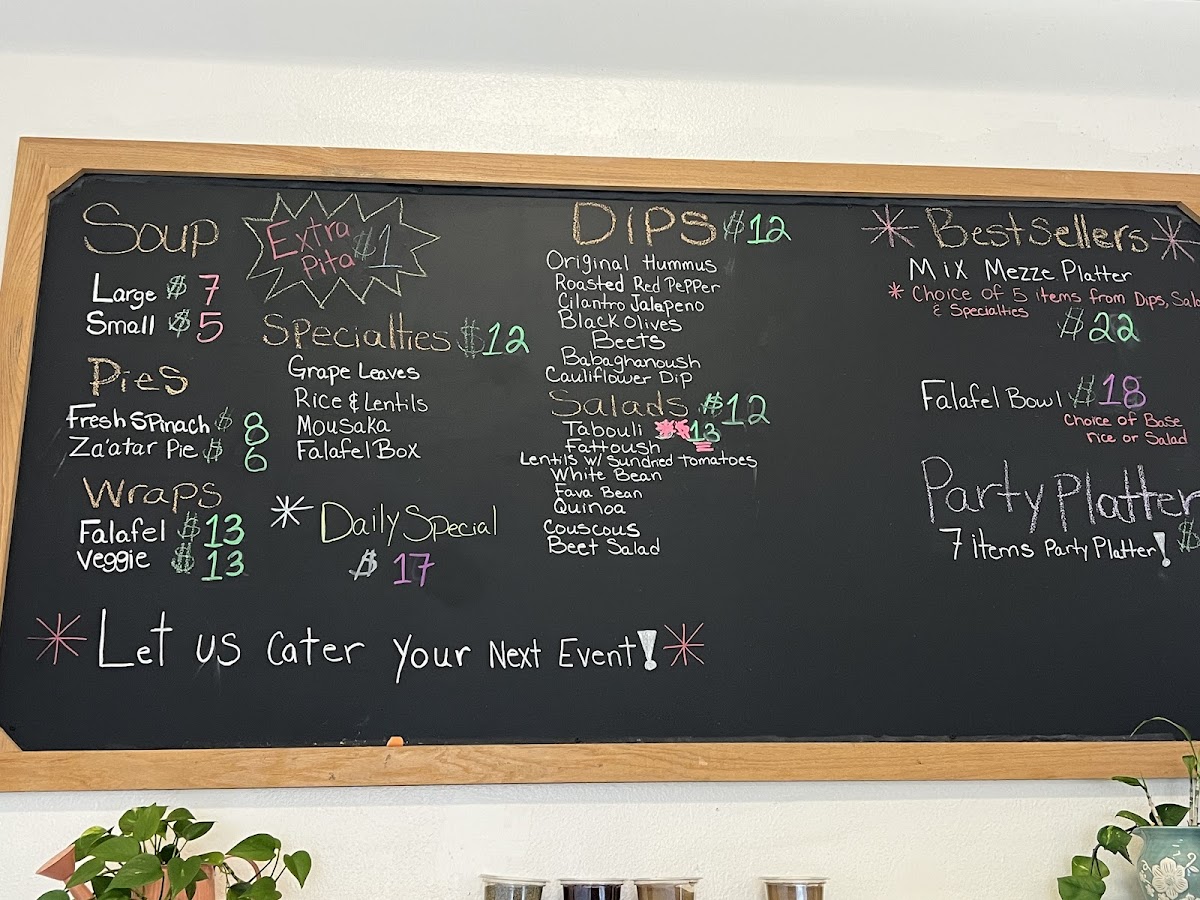 Soup
Large $ 7
Small $ 5
Extra
Pita $1
Pies
Fresh Spinach $ 8
Za'atar Pie $ 6
Wraps
Falafel $ 13
Veggie $ 13
Specialties $12
Grape Leaves
Rice & Lentils
Mousaka
Falafel Box
Daily Special
$ 17
Dips $12
Original Hummus
Roasted Red Pepper
Cilantro Jalapeno
Black Olives
Beets
Babaghanoush
Cauliflower Dip
Salads $12
Tabouli 13
Fattoush
Lentils w/ Sundried Tomatoes
White Bean
Fava Bean
Quinoa
Couscous
Beet Salad
Best Sellers
Mix Mezze Platter
* Choice of 5 items from Dips, Sala
& Specialties
$22
Falafel Bowl $18
Choice of Base
rice or Salad
Party Platter
7 items Party Platter! $
* Let us cater your Next Event! *